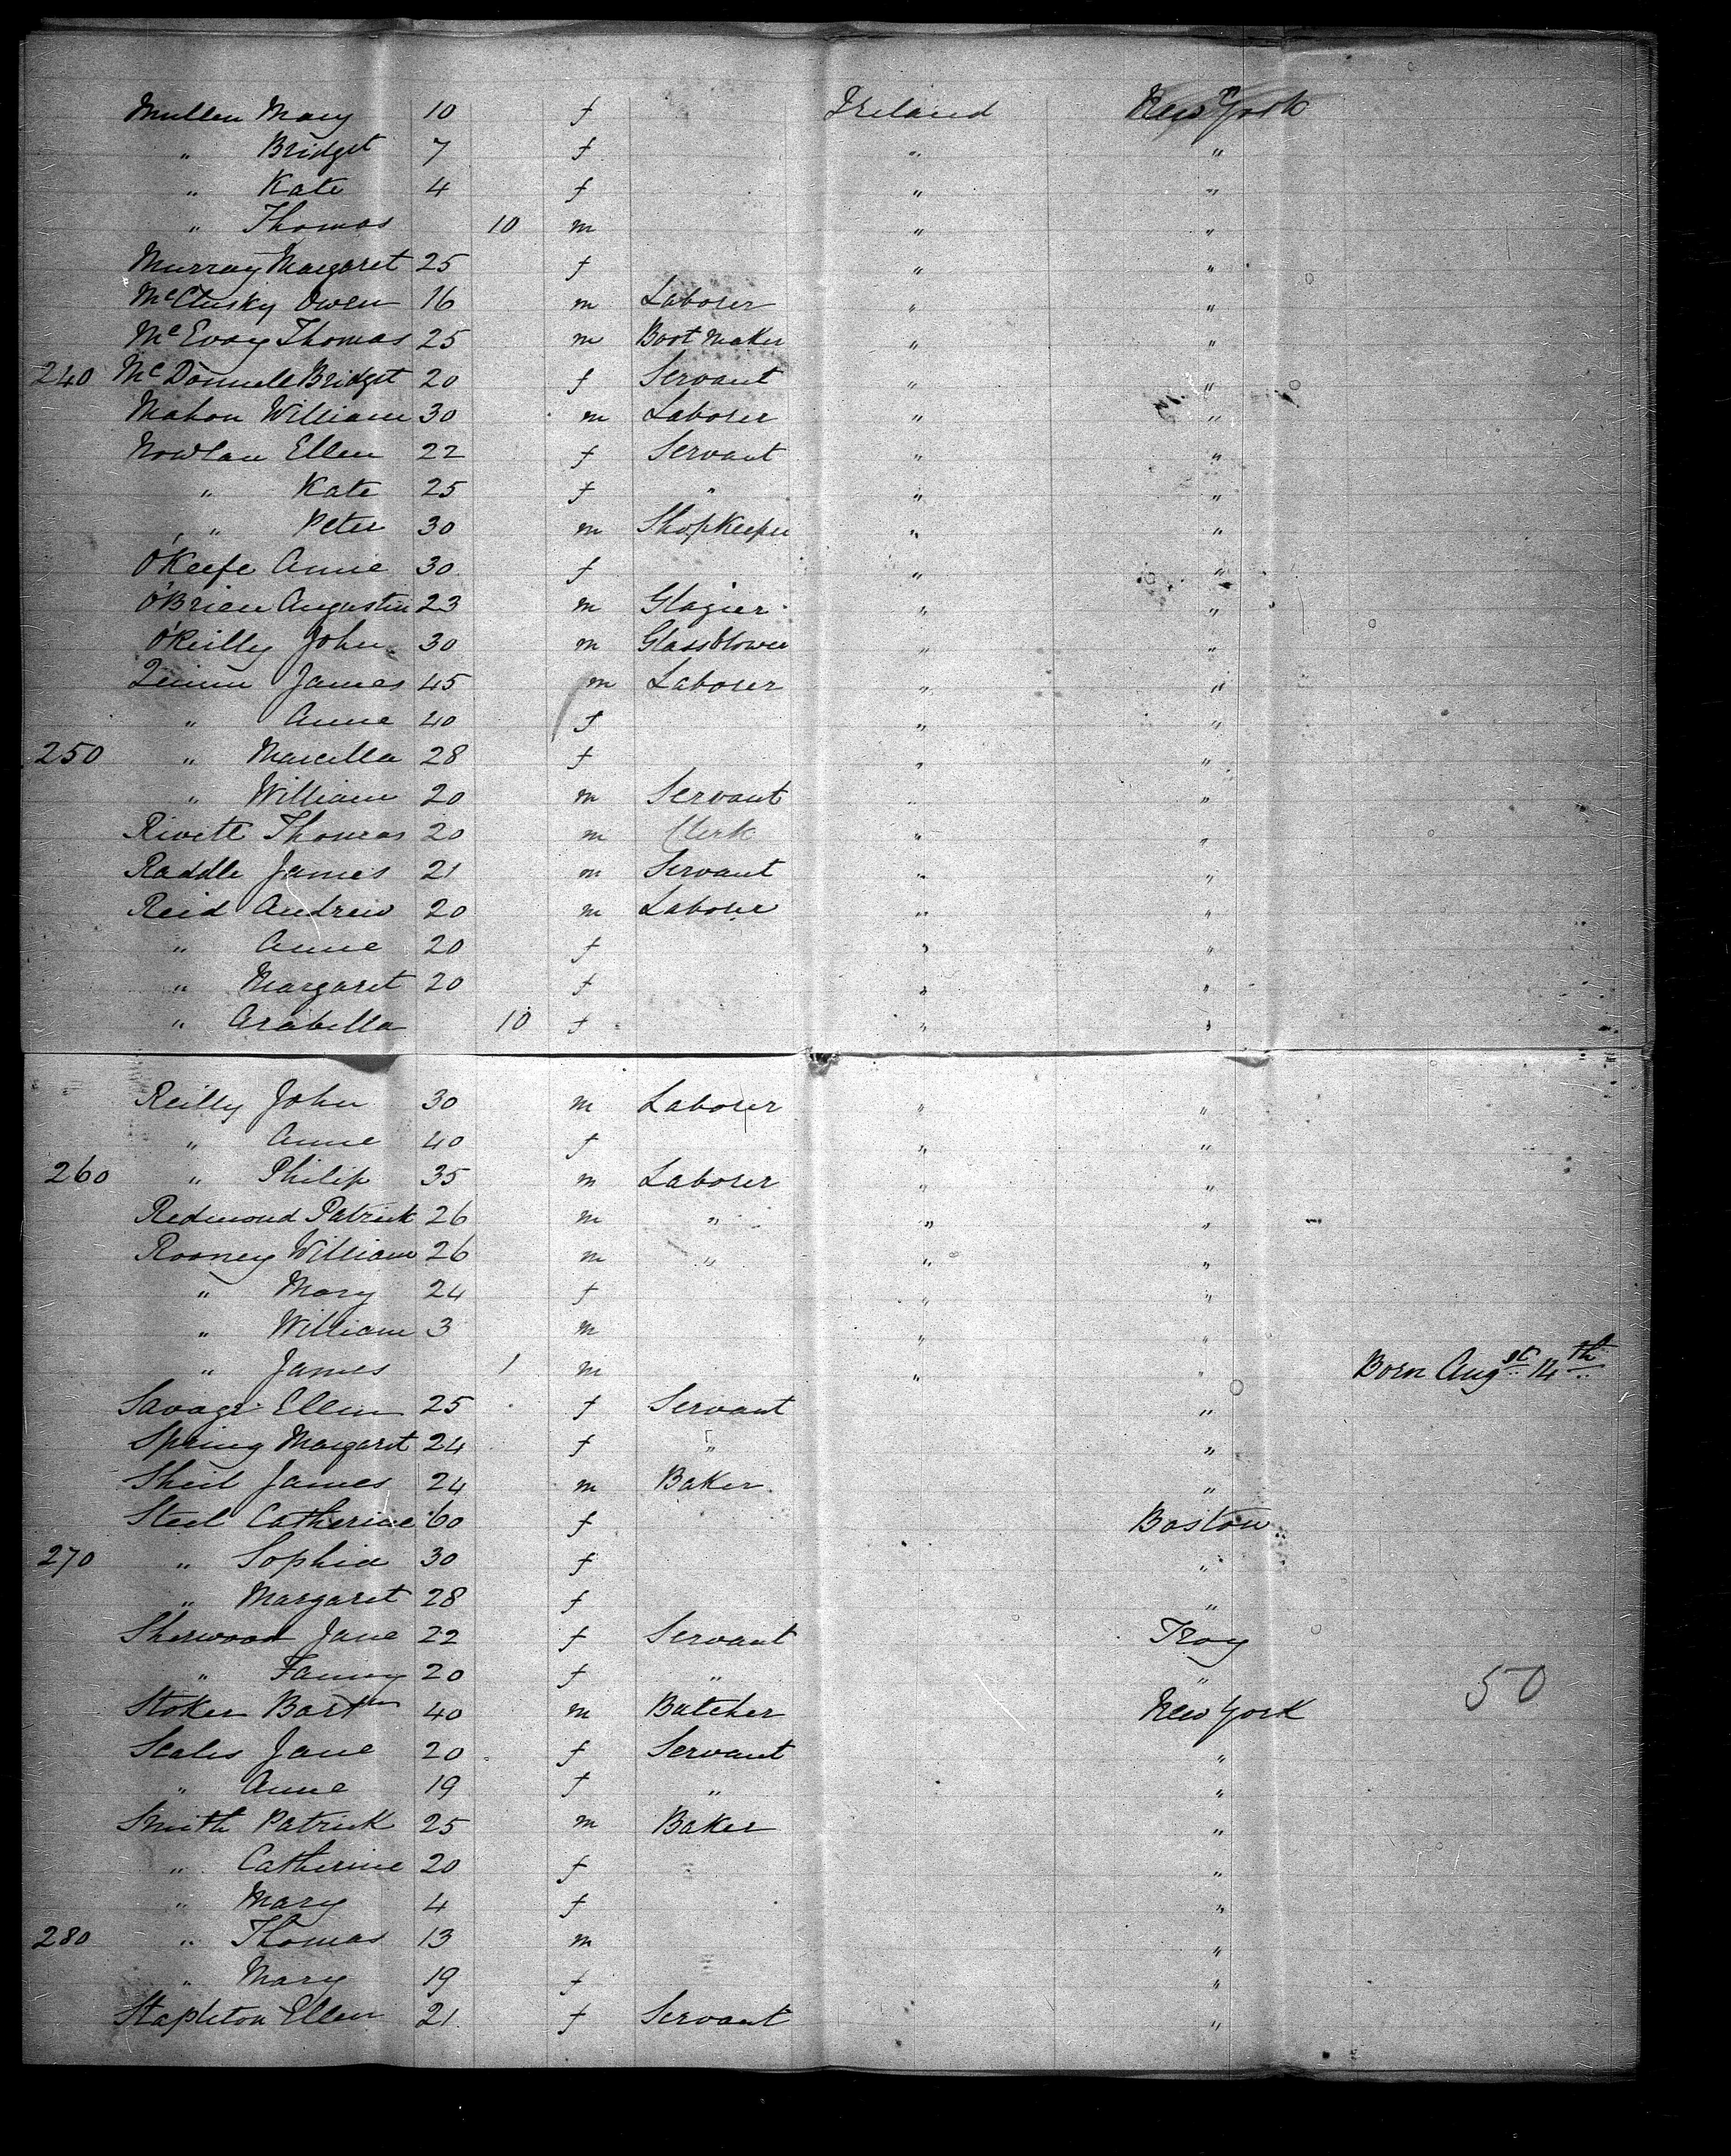 Mullen Mary 10 f Ireland New York
" Bridget 7 f " "
" Kate 4 f " "
" Thomas 10 m " "
Murray Margaret 25 f " "
McClusky Owen 16 m Laborer " "
McEvoy Thomas 25 m Boot Maker " "
240 McDonnell Bridget 20 f Servant " "
Mahon William 30 m Laborer " "
Nowlan Ellen 22 f Servant " "
" Kate 25 f " " "
" Peter 30 m Shopkeeper " "
O'Keefe Annie 30 f " "
O'Brien Augustin 23 m Glazier " "
O'Reilly John 30 m Glassblower " "
Quinn James 45 m Laborer " "
" Anne 40 f " "
250 " Marcella 28 f " "
" William 20 m Servant " "
Rivett Thomas 20 m Clerk " "
Raddle James 21 m Servant " "
Reid Andrew 20 m Laborer " "
" Anne 20 f " "
" Margaret 20 f " "
" Arabella 10 f " "
Reilly John 30 m Laborer " "
" Anne 40 f " "
260 " Philip 35 m Laborer " "
Redmond Patrick 26 m " " "
Rooney William 26 m " " "
" Mary 24 f " "
" William 3 m " "
" James 1 m " " Born Augst 14th
Savage Ellen 25 f Servant "
Spring Margaret 24 f " "
Sheil James 24 m Baker "
Steel Catherine 60 f Boston
270 " Sophia 30 f "
" Margaret 28 f "
Sherwood Jane 22 f Servant Troy
" Fanny 20 f " "
50
Stoker Bartw 40 m Butcher New York
Scales Jane 20 f Servant "
" Anne 19 f " "
Smith Patrick 25 m Baker "
" Catherine 20 f "
" Mary 4 f "
280 " Thomas 13 m "
" Mary 19 f "
Stapleton Ellen 21 f Servant "